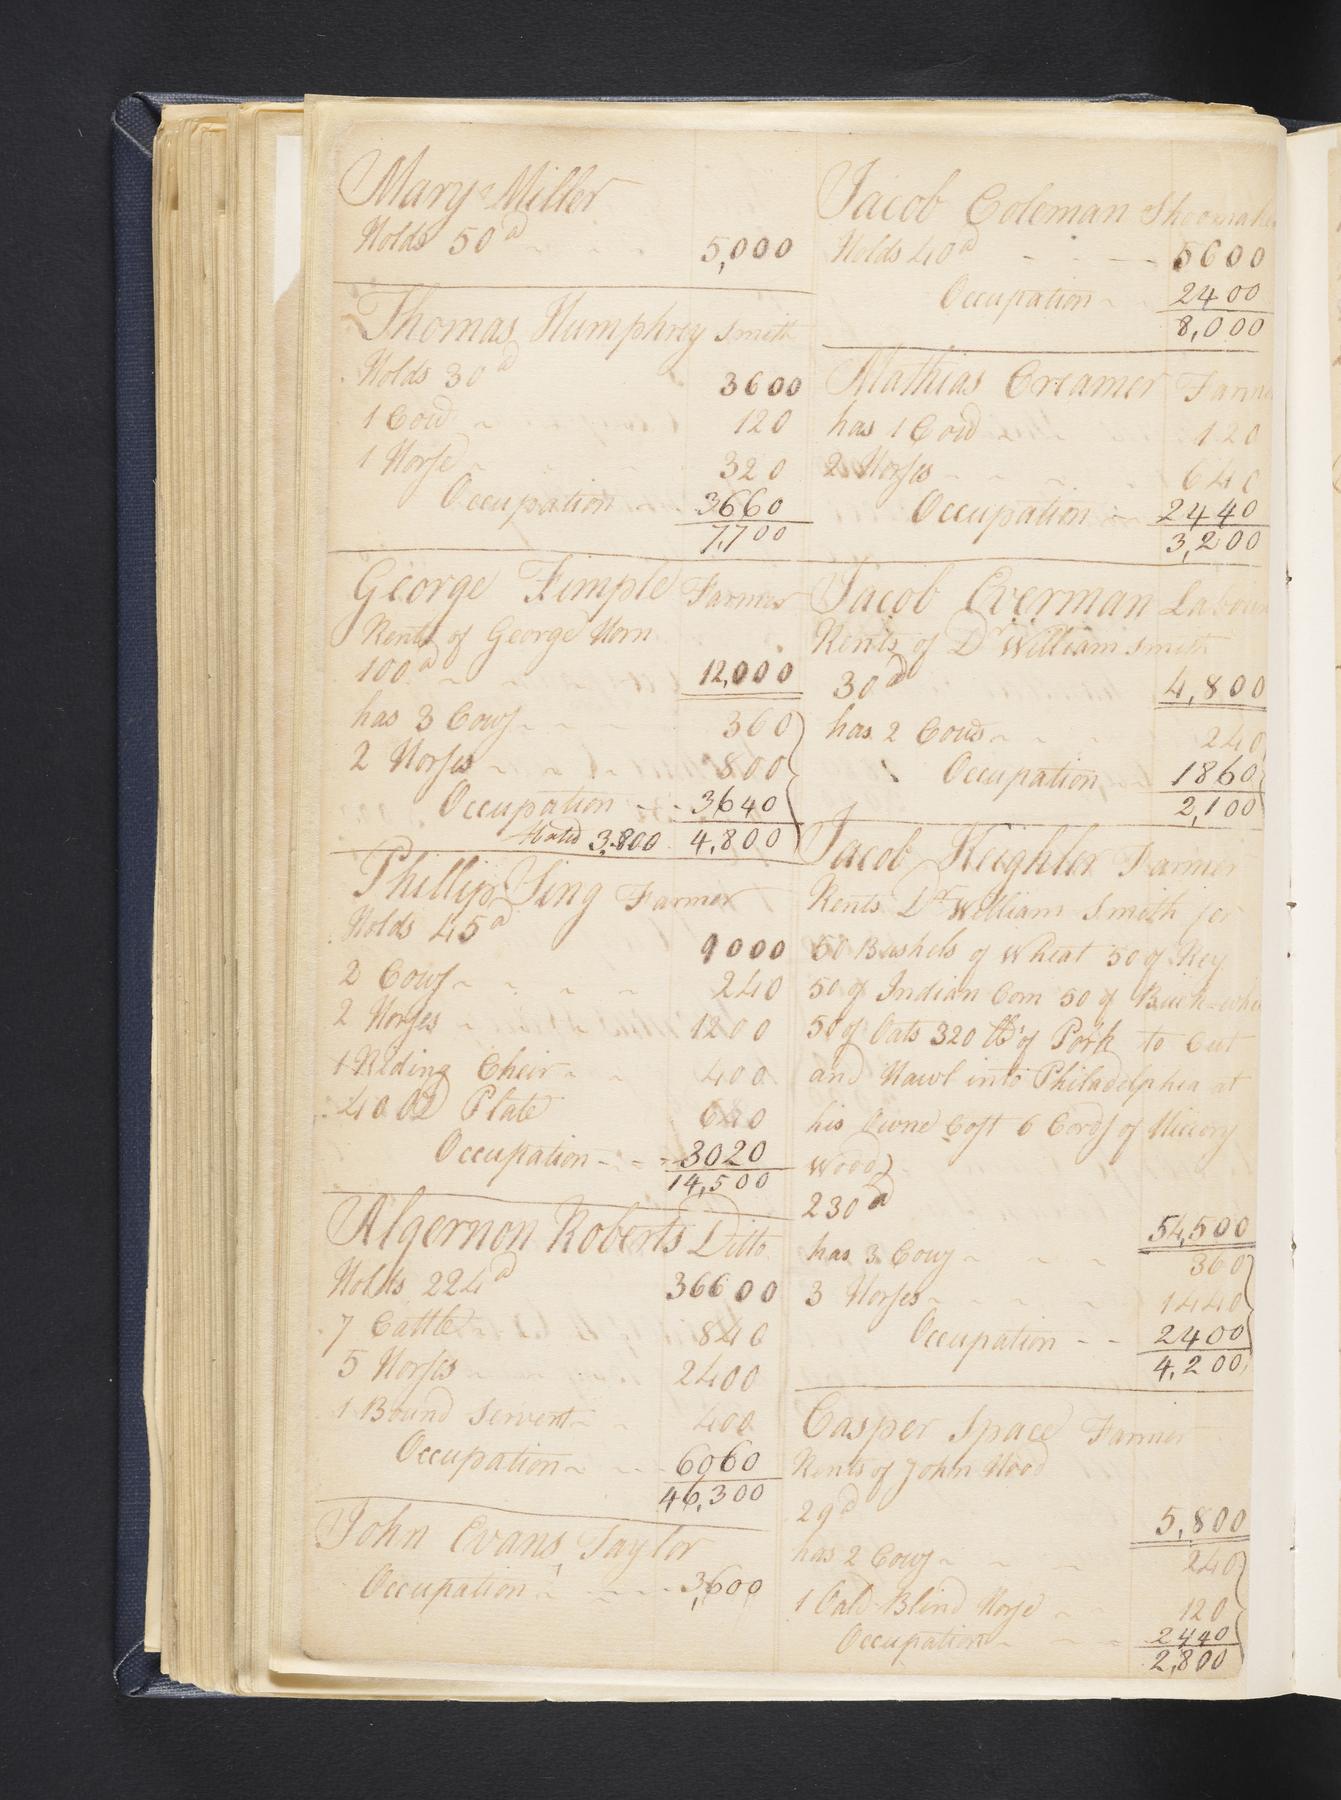 Mary Miller
Holds 50a 5,000
Thomas Humphrey Smith
Holds 30a 3600
1 Cow 120
1 Horse 320
Occupation 3660
7,700
George Fimple Farmer
Rents of George Horn
100a 12,000
has 3 Cows 360
2 Horses 800
Occupation 3640
Stated 3.800 4,800
Phillip Sing Farmer
Holds 45a 9000
2 Cows 240
2 Horses 1200
1 Riding Cheir 400
40 oz Plate 640
Occupation 3020
14,500
Algernon Roberts Ditto
Holds 224a 36600
7 Cattle 840
5 Horses 2400
1 Bound Servent 400
Occupation 6060
46,300
John Evans Taylor
Occupation 3,600
Jacob Coleman Shoomake
Holds 40a 5600
Occupation 2400
8,000
Mathias Creamer Farme
has 1 Cow 120
2 Horses 640
Occupation 2440
3,200
Jacob Everman Labour
Rents of Dr William Smith
30a 4,800
has 2 Cows 240
Occupation 1860
2,100
Jacob Keighler Farmer
Rents Dr William Smith for
50 Bushels of Wheat 50 of Rey
50 of Indian Corn 50 of Buck-whe
50 of Oats 320 lb of Pork to Cut
and Hawl into Philadelphia at
his Owne Cost 6 Cords of Hicory
Wood
230a 54,500
has 3 Cows 360
3 Horses 1440
Occupation 2400
4,200
Casper Space Farmer
Rents of John Wood
29a 5,800
has 2 Cows 240
1 Oald Blind Horse 120
Occupation 2440
2,800